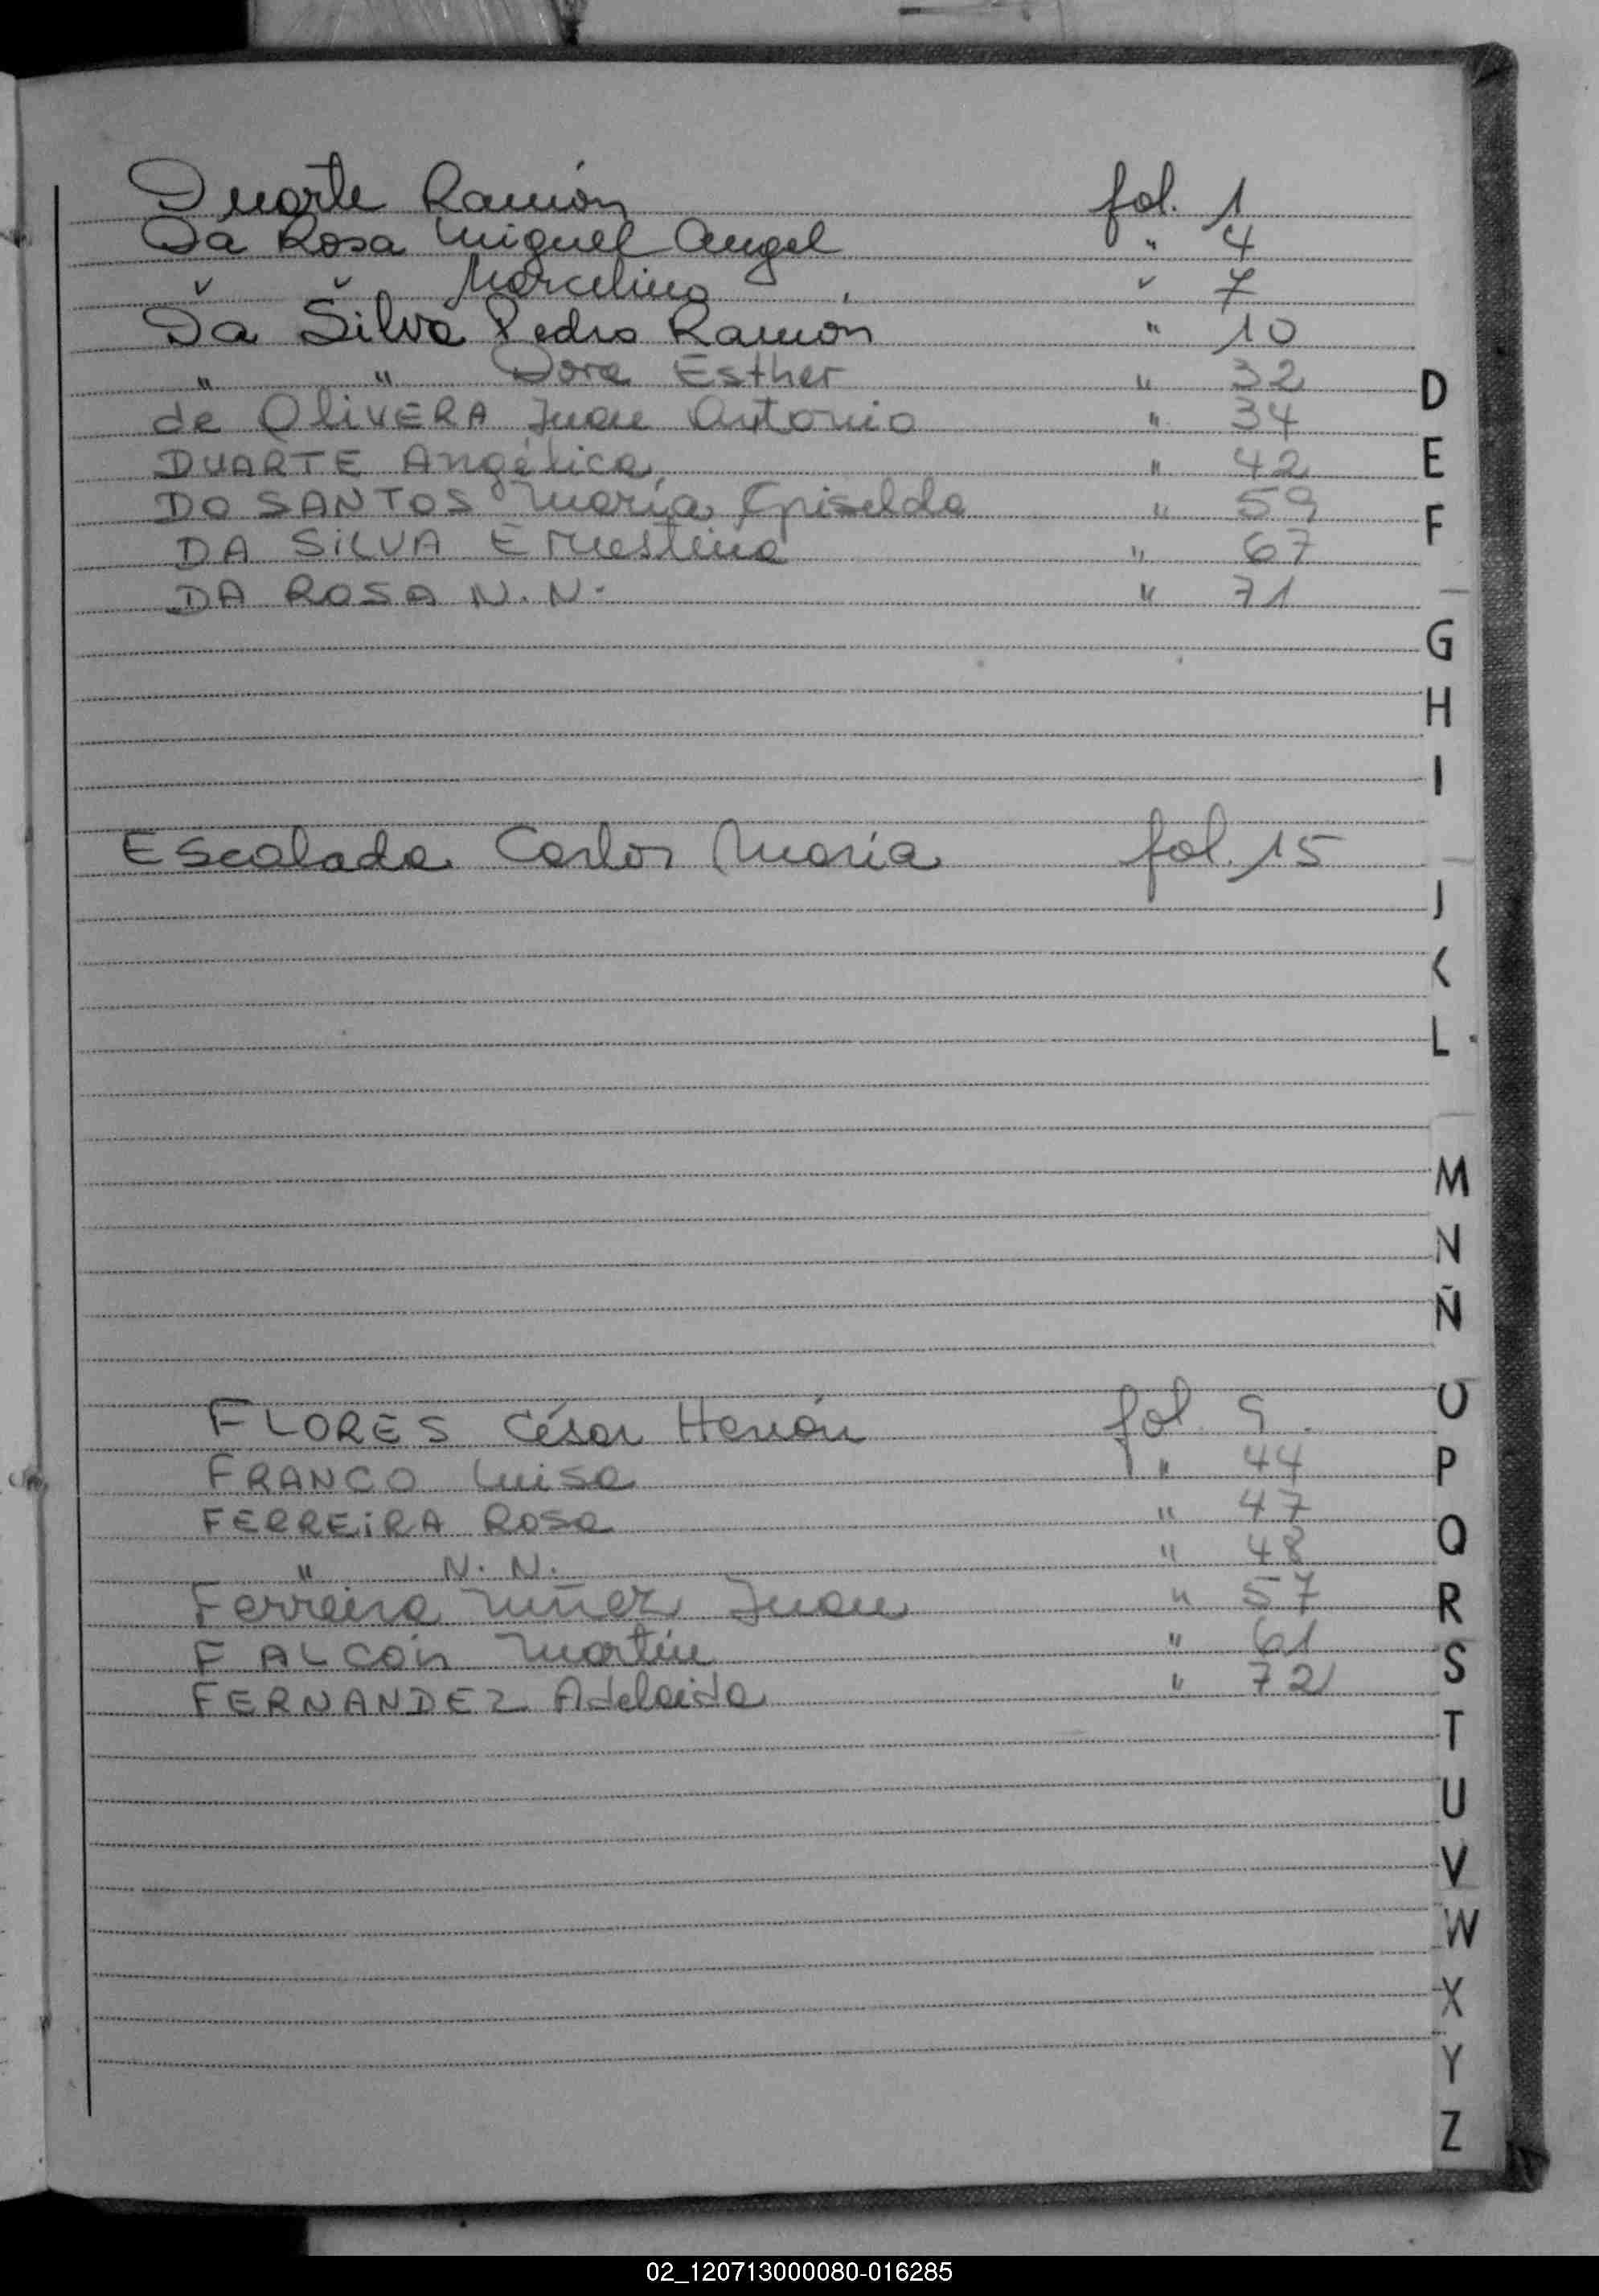 Duarte Ramón fol. 1
Da Rosa Miguel Angel " 4
" " Marcelino " 7
Da Silva Pedro Ramón " 10
" " Dora Esther " 32
de OliVERA Juan Antonio " 34
DUARTE Angélica " 42
DO SANTOS María Griselda " 59
DA SiLVA Ernestina " 67
DA ROSA N.N. " 71
Escalada Carlos María fol. 15
FLORES César Hernán fol. 9
FRANCO Luisa " 44
FERREiRA Rosa " 47
" N.N. " 48
Ferreira Nuñez Juan " 57
FALCÓN Martín " 61
FERNANDEZ Adelaida " 72
D
E
F
G
H
I
J
K
L
M
N
Ñ
O
P
Q
R
S
T
U
V
W
X
Y
Z
02_120713000080-016285